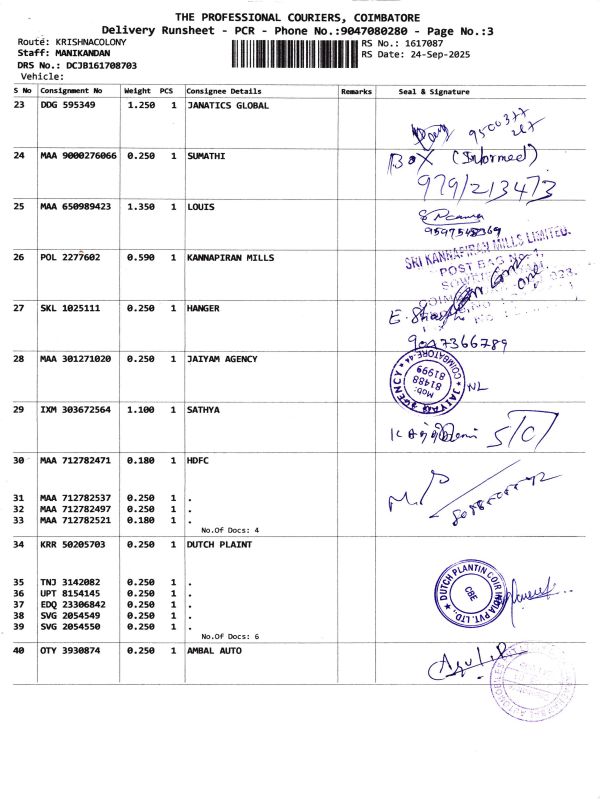 THE PROFESSIONAL COURIERS, COIMBATORE
Delivery Runsheet - PCR - Phone No.:9047080280 - Page No.:3
Route: KRISHNACOLONY RS No.: 1617087
Staff: MANIKANDAN RS Date: 24-Sep-2025
DRS No.: DCJB161708703
Vehicle:
S No Consignment No Weight PCS Consignee Details Remarks Seal & Signature
23 DDG 595349 1.250 1 JANATICS GLOBAL
24 MAA 9000276066 0.250 1 SUMATHI
BOX (Informed)
979/213473
25 MAA 650989423 1.350 1 LOUIS
26 POL 2277602 0.590 1 KANNAPIRAN MILLS
SRI KANNAPIRAN MILLS LIMITED.
POST BAG No.
27 SKL 1025111 0.250 1 HANGER
28 MAA 301271020 0.250 1 JAIYAM AGENCY
JAIYAM AGENCY COIMBATORE-44
Mob: 81488 81999
NL
29 IXM 303672564 1.100 1 SATHYA
30 MAA 712782471 0.180 1 HDFC
31 MAA 712782537 0.250 1 .
32 MAA 712782497 0.250 1 .
33 MAA 712782521 0.180 1 .
No.Of Docs: 4
34 KRR 50205703 0.250 1 DUTCH PLAINT
DUTCH PLANTIN COIR INDIA PVT. LTD.,
CBE
35 TNJ 3142082 0.250 1 .
36 UPT 8154145 0.250 1 .
37 EDQ 23306842 0.250 1 .
38 SVG 2054549 0.250 1 .
39 SVG 2054550 0.250 1 .
No.Of Docs: 6
40 OTY 3930874 0.250 1 AMBAL AUTO